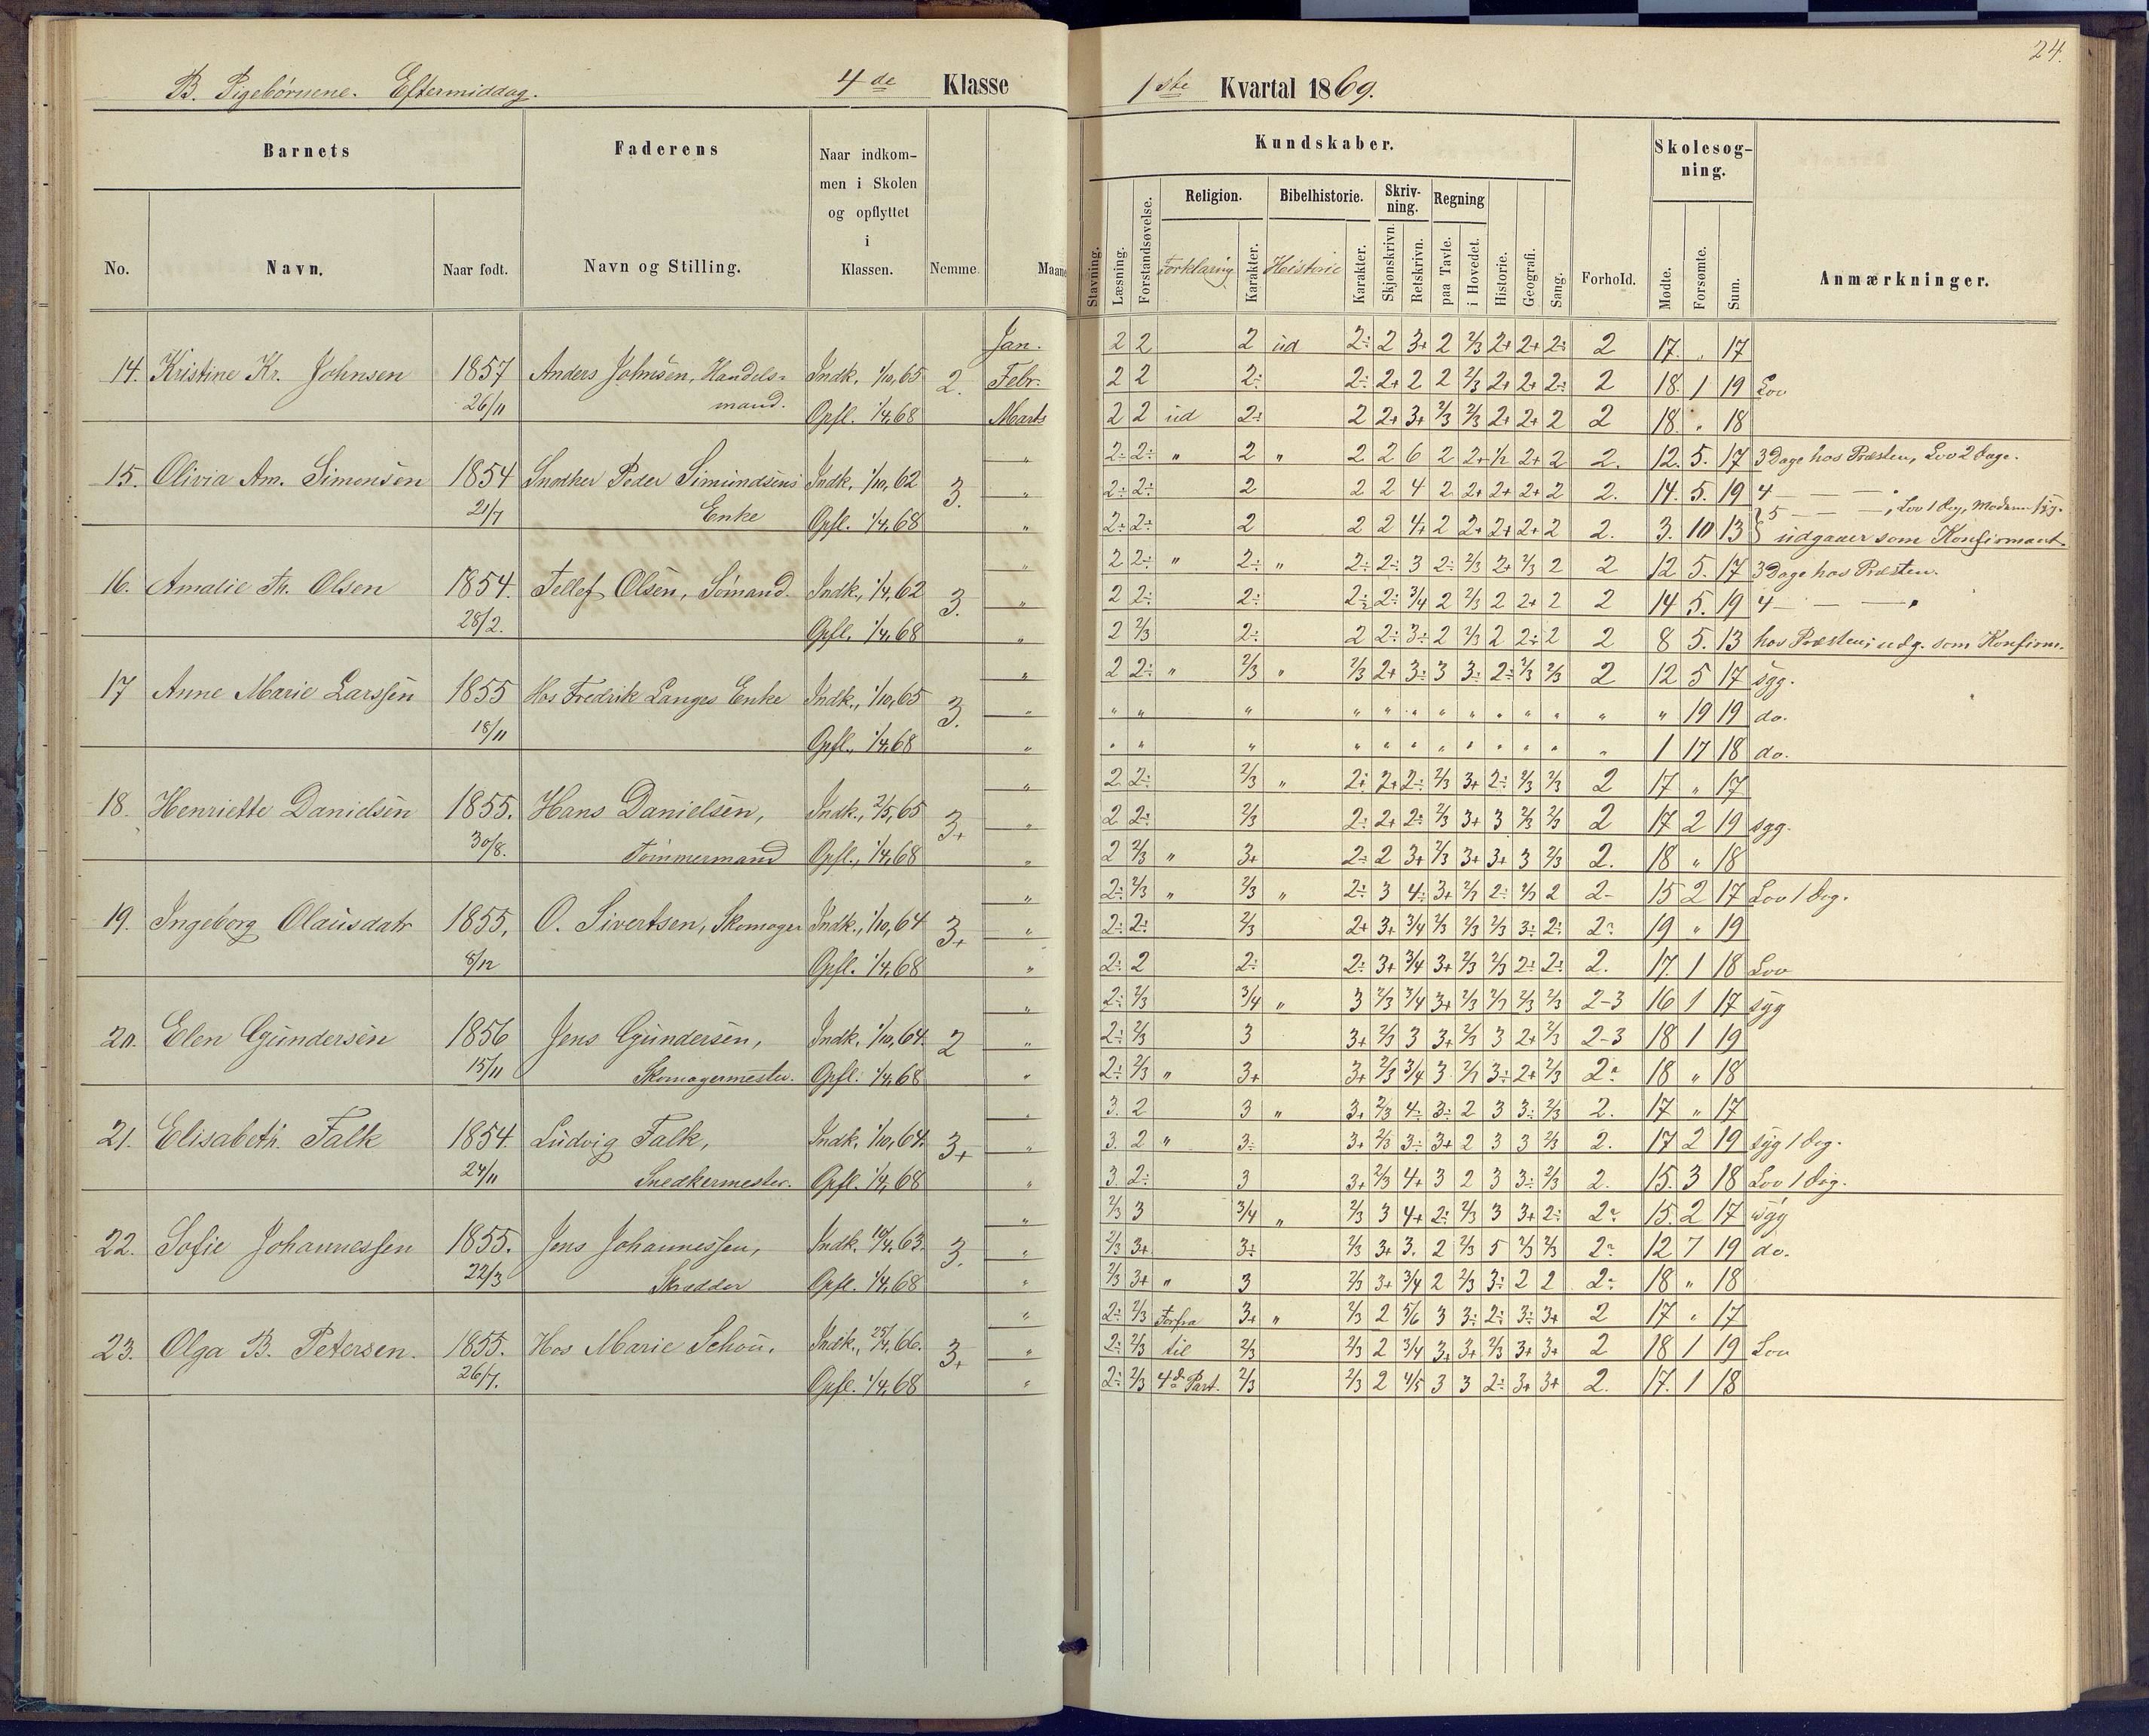 24.
B. Pigebörnene. Eftermiddag. 4de Klasse
1ste Kvartal 1869.
Barnets Faderens Naar indkommen i Skolen og opflyttet i Klassen. Nemme. Maane
No. Navn. Naar født. Navn og Stilling.
Kundskaber. Forhold. Skolesøgning. Anmærkninger.
Stavning. Læsning. Forstandsøvelse. Religion. Forklaring Karakter. Bibelhistorie. Historie Karakter. Skrivning. Skjønskrivn. Retskrivn. Regning paa Tavle. i Hovedet. Historie. Geografi. Sang. Mødte. Forsømte. Sum.
14. Kristine Kr. Johnsen 1857 26/11 Anders Johnsen, Handelsmand. Indk. 1/10,65 Opfl. 1/4,68 2.
Jan. 2 2 2 ud 2÷ 2 3+ 2 2/3 2+ 2+ 2÷ 2 17. „ 17
Febr. 2 2 2÷ 2÷ 2+ 2 2 2/3 2+ 2+ 2÷ 2 18. 1 19 Lov
Marts 2 2 ud 2÷ 2 2+ 3+ 2/3 2/3 2+ 2+ 2 2 18. „ 18
15. Olivia Am. Simonsen 1854 21/7 Snedker Peder Simundsens Enke Indk. 1/10,62 Opfl. 1/4,68 3.
„ 2÷ 2÷ „ 2 „ 2 2 6 2 2+ 1/2 2+ 2 2. 12. 5. 17 3 Dage hos Præsten, Lov 2 Dage.
„ 2÷ 2÷ 2 2 2 4 2 2+ 2+ 2+ 2 2. 14. 5. 19 4 — — —
„ 2÷ 2÷ 2 2 2 4+ 2 2+ 2+ 2+ 2 2. 3. 10 13 5 — — —, Lov 1 Dag, Moderen syg. udgaaer som Konfirmant
16. Amalie Th. Olsen 1854. 28/2. Tellef Olsen, Sømand. Indk., 1/4,62 Opfl. 1/4,68 3.
„ 2 2÷ „ 2÷ „ 2÷ 2÷ 3 2÷ 2/3 2+ 2/3 2 2 12 5. 17 3 Dage hos Præsten.
„ 2 2÷ 2÷ 2÷ 2÷ 3/4 2 2/3 2 2+ 2 2 14 5. 19 4 — — —
„ 2 2/3 2÷ 2 2÷ 3÷ 2 2/3 2 2÷ 2 2 8 5. 13 hos Præsten; udg. som Konfirm.
17 Anne Marie Larssen 1855 18/11 Hos Fredrik Langes Enke Indk., 1/10,65 Opfl., 1/4,68 3.
„ 2 2÷ „ 2/3 „ 2/3 2+ 3÷ 3 3÷ 2÷ 2/3 2/3 2 12 5 17 syg.
„ „ „ „ „ „ „ „ „ „ „ „ „ „ 19 19 do.
„ „ „ „ „ „ „ „ „ „ „ „ „ 1 17 18 do.
18. Henriette Danielsen 1855. 30/8. Hans Danielsen, Tömmermand Indk., 2/5,65 Opfl., 1/4,68 3+
„ 2 2÷ 2/3 „ 2÷ 2+ 2÷ 2/3 3+ 2÷ 2/3 2/3 2 17 „ 17
„ 2 2÷ 2/3 2÷ 2+ 2÷ 2/3 3+ 3 2/3 2/3 2 17 2 19 syg.
„ 2 2/3 „ 3+ 2÷ 2 3+ 2/3 3+ 3+ 3 2/3 2. 18 „ 18
19. Ingeborg Olausdatr 1855, 8/12 O. Sivertsen, Skomager Indk., 1/10,64 Opfl. 1/4,68 3+
„ 2÷ 2/3 „ 2/3 „ 2÷ 3 4÷ 3+ 2/3 2÷ 2/3 2 2- 15 2 17 Lov 1 Dag.
„ 2÷ 2÷ 2/3 2+ 3+ 3/4 2/3 2/3 2/3 3÷ 2÷ 2÷ 19 „ 19
„ 2÷ 2 2÷ 2÷ 3+ 3/4 3+ 2/3 2/3 2÷ 2÷ 2. 17. 1 18 Lov
20. Elen Gundersen 1856 15/11 Jens Gundersen, Skomagermester. Indk. 1/10,64 Opfl. 1/4,68 2
„ 2÷ 2/3 3/4 „ 3 2/3 3/4 3+ 2/3 2/3 2/3 2/3 2-3 16 1 17 syg
„ 2÷ 2/3 3 3+ 2/3 3 3+ 2/3 3 2+ 2/3 2-3 18 1 19
„ 2÷ 2/3 „ 3+ 3+ 2/3 3/4 3 2/3 3÷ 2+ 2/3 2÷ 18 „ 18
21. Elisabeth Falk 1854. 24/11 Ludvig Falk, Snedkermester. Indk. 1/10,64. Opfl. 1/4,68 3+
„ 3. 2 3 „ 3+ 2/3 4÷ 3÷ 2 3 3÷ 2/3 2. 17 „ 17
„ 3. 2 „ 3÷ 3+ 2/3 3÷ 3+ 2 3 3 2/3 2. 17 2 19 syg 1 Dag.
„ 3. 2÷ 3 3+ 2/3 4+ 3 2 3 3÷ 2/3 2. 15. 3 18 Lov 1 Dag.
22. Sofie Johannessen 1855. 22/3 Jens Johannessen, Skrædder Indk. 10/4,63. Opfl. 1/4,68 3.
„ 2/3 3 3/4 „ 2/3 3 4+ 2÷ 2/3 3 3+ 2÷ 2÷ 15. 2 17 syg
„ 2/3 3+ 3÷ 2/3 3+ 3. 2 2/3 5 2/3 2/3 2÷ 12 7 19 do.
„ 2/3 3+ „ 3 2/3 3+ 3/4 2 2/3 3÷ 2 2 2÷ 18 „ 18
23. Olga B. Petersen. 1855. 26/7. Hos Marie Schou. Indk., 25/4,66. Opfl. 1/4,68 3+
„ 2÷ 2/3 Forfra 3+ „ 2/3 2 5/6 3 3÷ 2÷ 3÷ 3+ 2 17 „ 17
„ 2÷ 2/3 til 2/3 2/3 2 3/4 3+ 3+ 2/3 3+ 3+ 2 18 1 19 Lov
„ 2÷ 2/3 4de Part. 2/3 2/3 2 4/5 3 3 2÷ 3+ 3+ 2. 17. 1 18